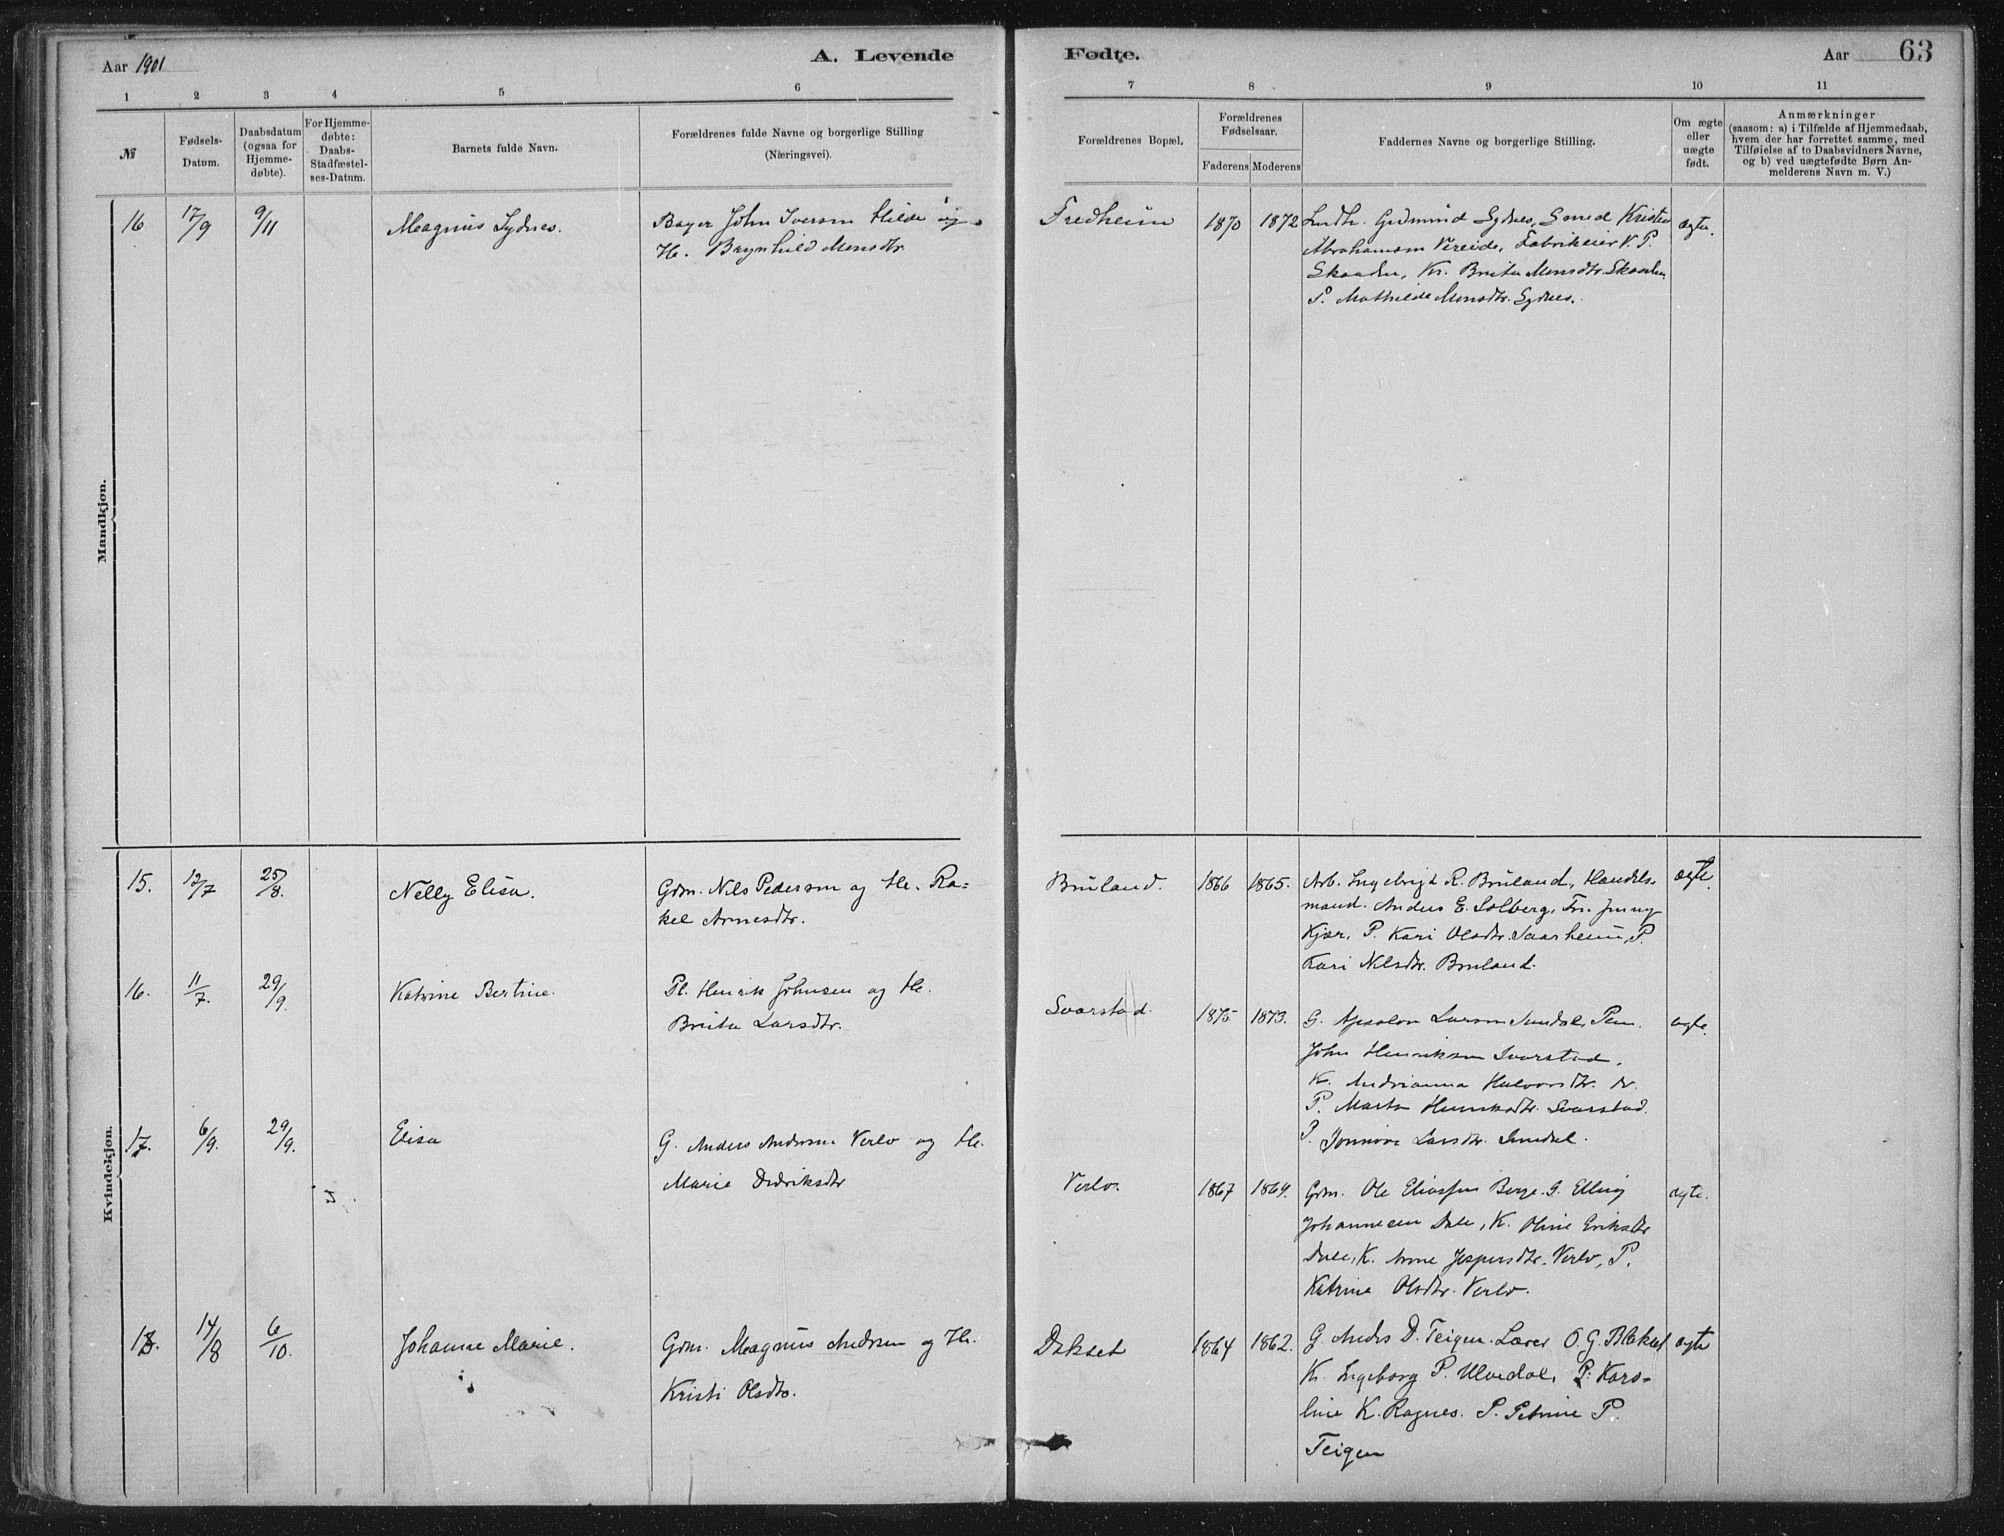 Aar 1901
A. Levende
Fødte.
Aar
63
1 2 3 4 5 6 7 8 9 10 11
№
Fødsels-
Datum.
Daabsdatum
(ogsaa for
Hjemme-
døbte).
For Hjemme-
døbte:
Daabs-
Stadfæstel-
ses-Datum.
Barnets fulde Navn.
Forældrenes fulde Navne og borgerlige Stilling
(Næringsvei).
Forældrenes Bopæl.
Forældrenes
Fødselsaar.
Faderens Moderens
Faddernes Navne og borgerlige Stilling.
Om ægte
eller
uægte
født.
Anmærkninger
(saasom: a) i Tilfælde af Hjemmedaab,
hvem der har forrettet samme, med
Tilføielse af to Daabsvidners Navne,
og b) ved uægtefødte Børn An-
melderens Navn m. V.)
Mandkjøn.
16 17/9 9/11 Magnus Sydnes.
Bager John Iversen Hilde og
H. Brynhild Monsdtr.
Fredheim 1870 1872
Gudmund Sydnes, Smed Kristen
Abrahamsen Vereide, Fabrikeier V. P.
Skaaden, K. Brita Monsdtr. Skaaden
P. Mathilde Monsdtr. Sydnes.
ægte.
Kvindekjøn.
15. 12/7 25/8. Nelly Elisa.
Grdm. Nils Pedersen og H. Ra-
kel Arnesdtr.
Bruland. 1866 1865.
Arb. Ingebrigt R. Bruland, Handels-
mand. Anders E. Solberg, Frk. Jenny
Kjær, P. Kari Olsdtr. Saarheim, P.
Kari Nilsdtr. Bruland.
ægte.
16. 11/7. 29/9. Katrine Bertine.
Pl. Henrik Johnsen og H.
Brita Larsdtr.
Svarstad. 1875 1873.
G. Apsalon Larsen Sundal, Pm.
John Henriksen Svarstad,
K. Andrianna Halvorsdtr. do.
P. Marta Henriksdtr. Svarstad.
P. Larsdtr. Sundal.
ægte.
17. 6/9. 29/9. Elisa
G. Anders Andersen Verlo og H.
Marie Didriksdtr
Verlo. 1867 1869.
Grdm. Ole Eliassen Berge. G. Elling
Johannesen Dale, K. Oline Eriksdtr
Dale, K. Anne Jespersdtr. Verlo, P.
Katrine Olsdtr. Verlo.
ægte.
18. 14/8 6/10. Johanne Marie.
Grdm. Magnus Andersen og H.
Kristi Olsdtr.
1864 1862.
G. Anders D. Teigen. Lærer O. G. Blakset
K. Ingeborg P. Ulvedal, P. Karo-
line K. Ragnes. P. Petrine P.
Teigen
ægte